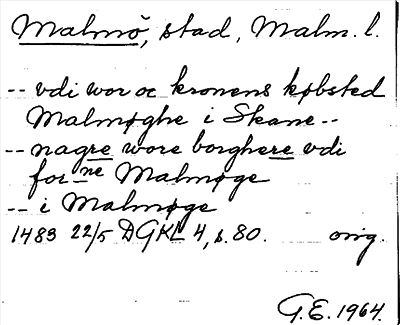 Malmö, stad, Malm. l.
-- vdi wor oc kronens købsted
Malmøghe i Skane --
-- nagre wore borghere vdi
forne Malmøge
-- i Malmøge
1483 22/5 DGKL 4, s. 80. orig.
G.E. 1964.